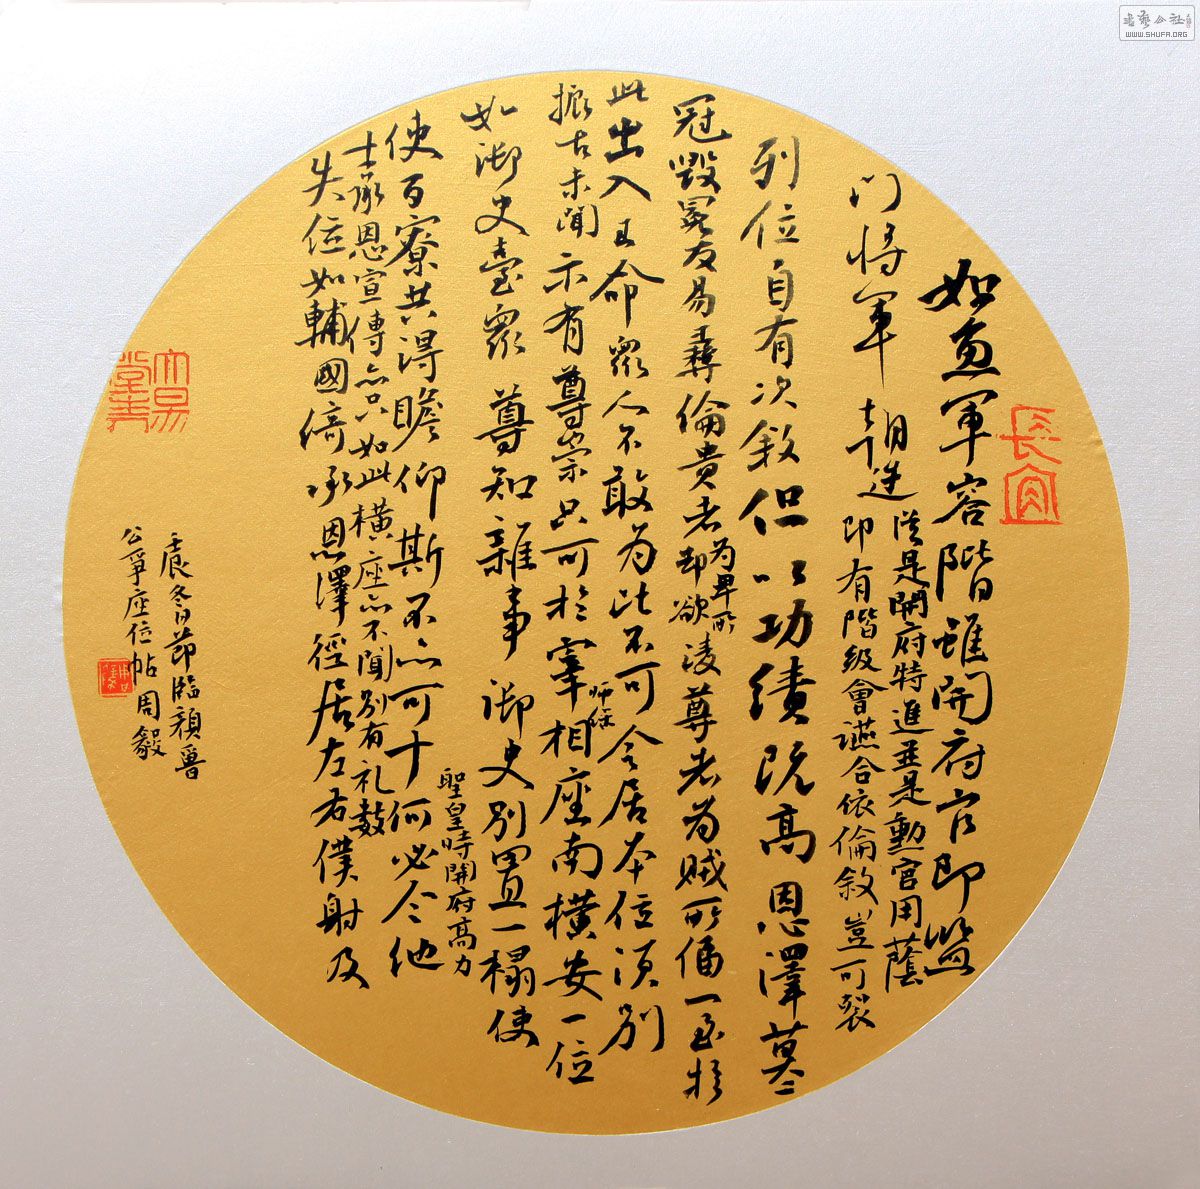 如魚軍容階雖開府官即監
門將軍朝廷
縱是開府特進並是勳官用蔭
即有階級會讌合依倫敘豈可裂
列位自有次敘但以功績既高恩澤莫二
冠毀冕反易彝倫貴者為卑所却欲凌尊者為賊所偪一至於
此出入王命眾人不敢為比不可令居本位須別
振古未聞示有尊崇只可於宰相師保座南橫安一位
如御史臺眾尊知雜事御史別置一榻使
聖皇時開府高力
使百寮共得瞻仰斯不亦可乎何必令他
士承恩宣傳亦只如此橫座亦不聞別有礼數
失位如輔國倚承恩澤徑居左右僕射及
壬辰冬日節臨顏魯
公爭座位帖周毅
長宜
书艺公社
WWW.SHUFA.ORG